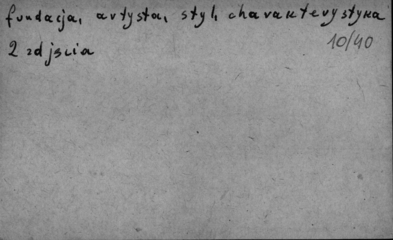 fundacja, artysta, styl, charakterystyka
10/40
2 zdjęcia